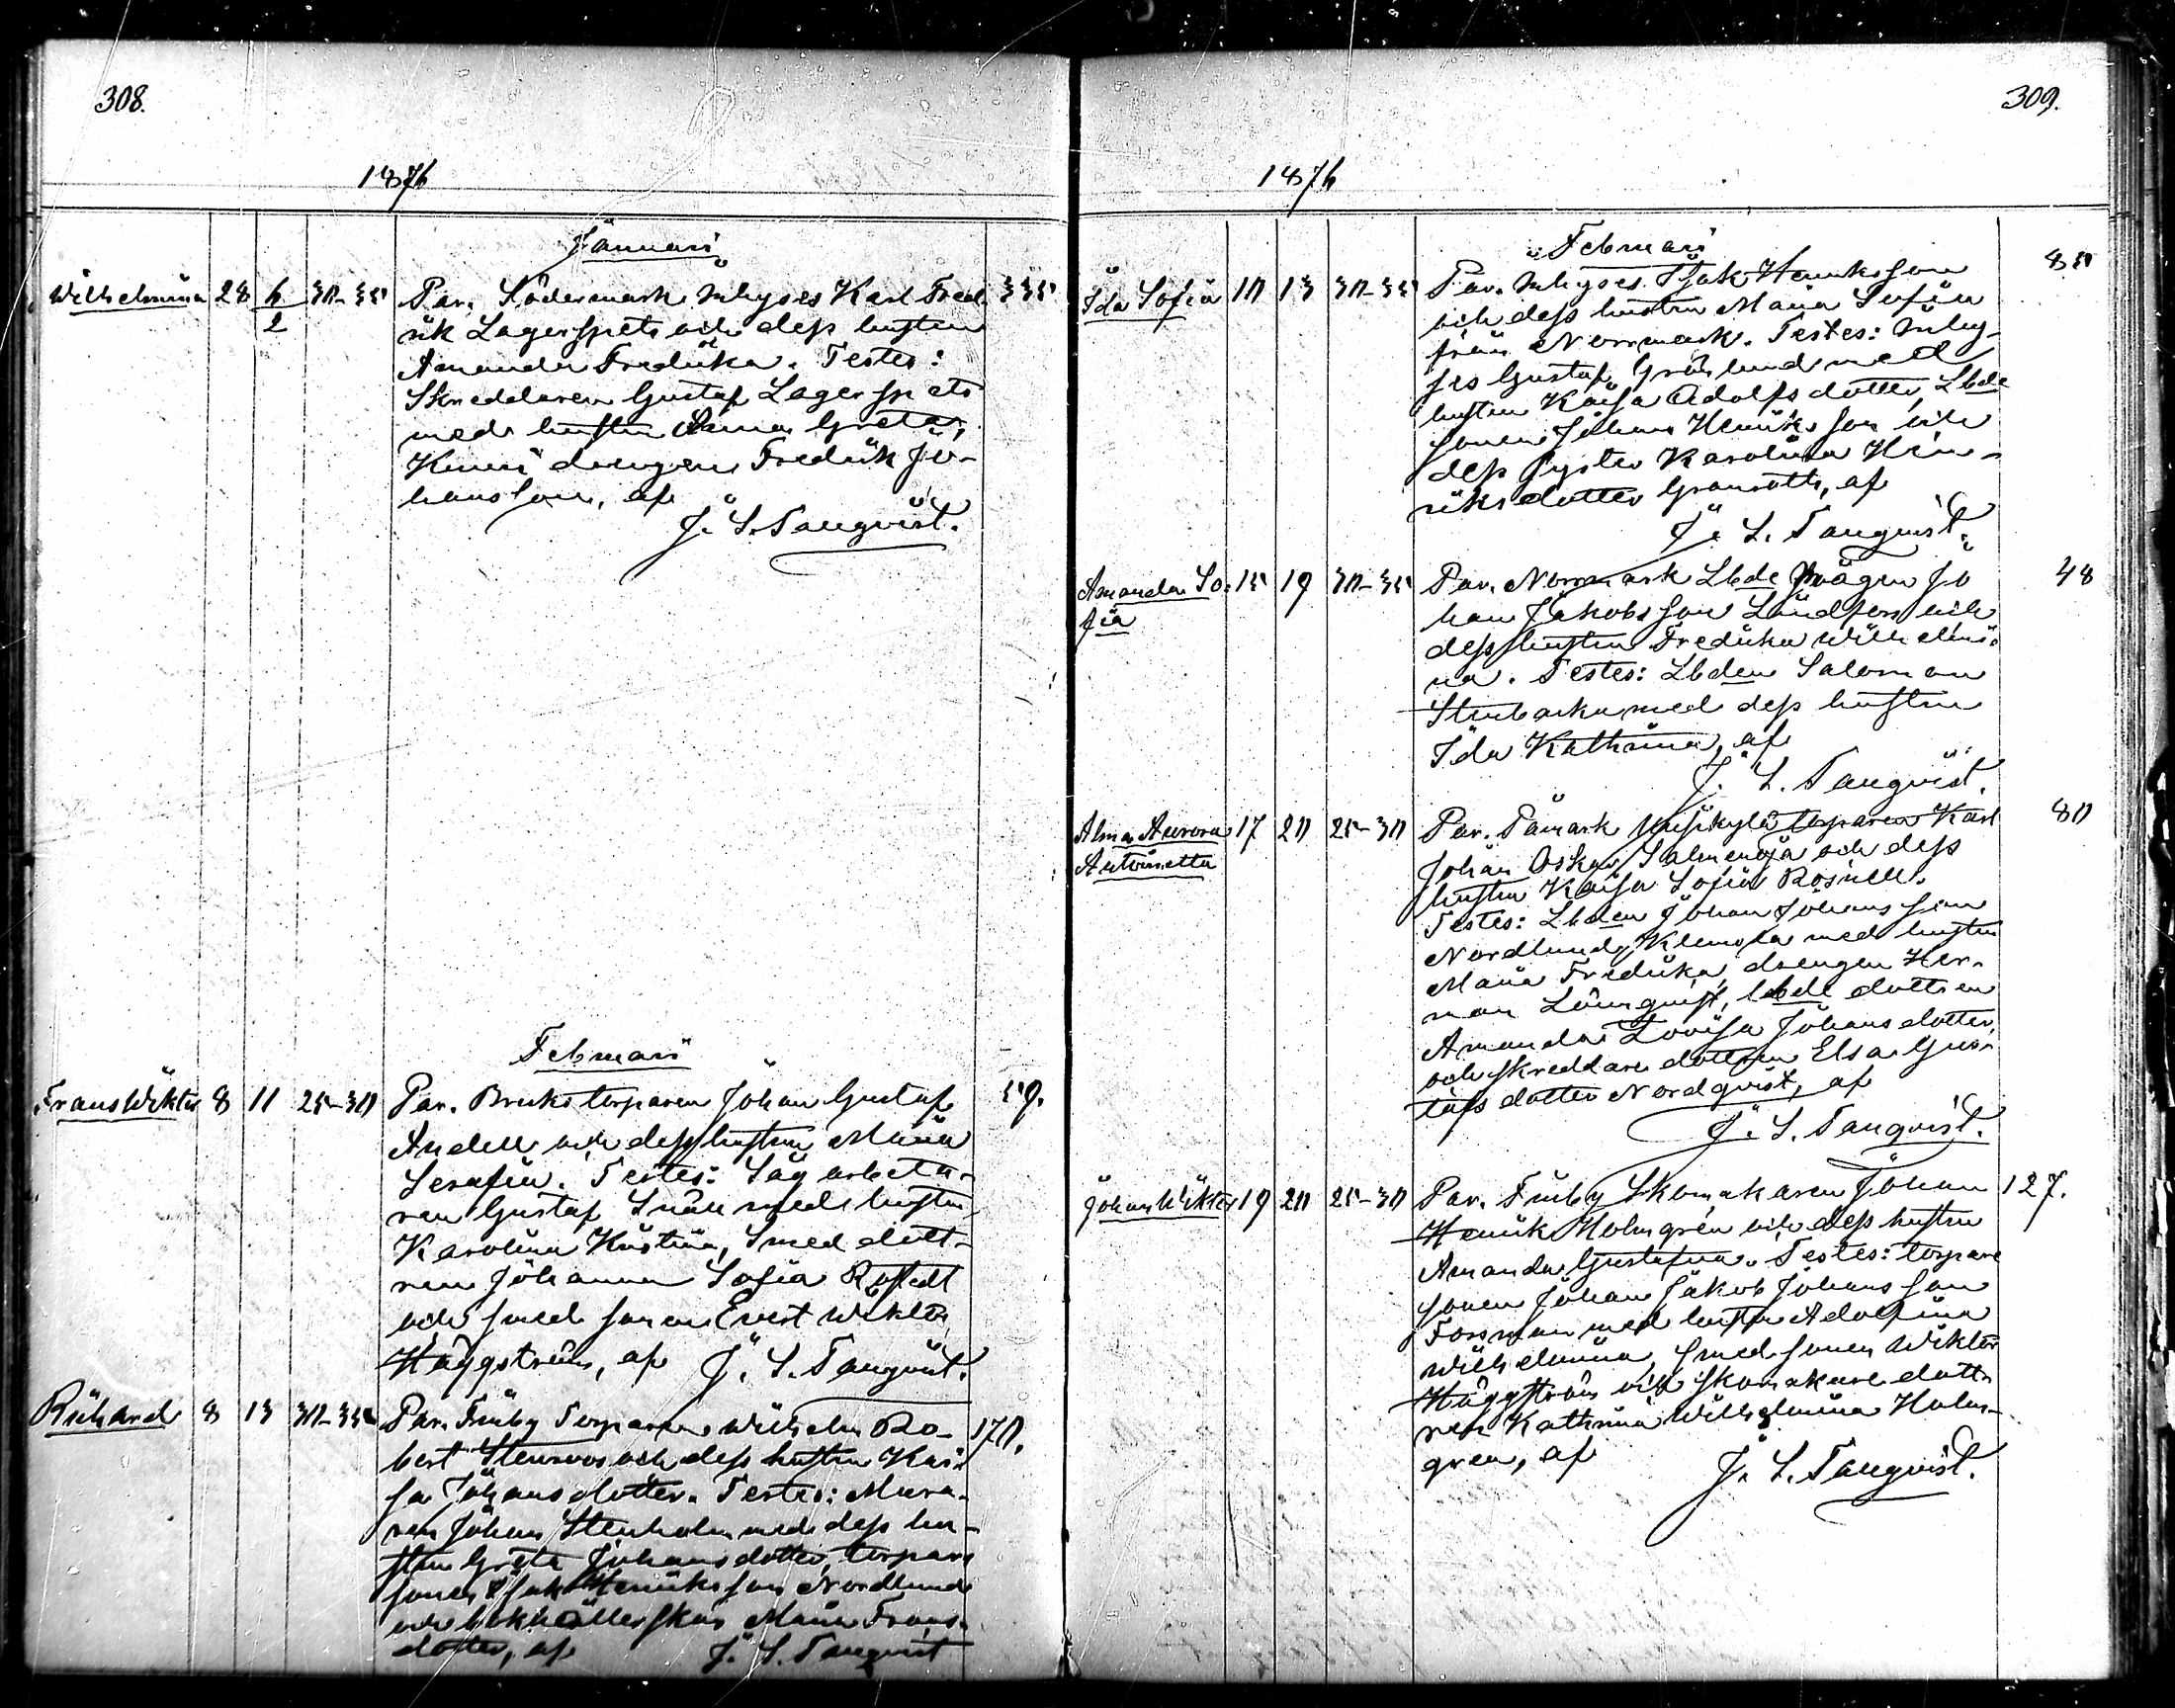 308.
1876
Januari
Wilhelmina 28 6/2 30-35 Par. Södermark Inhyses Karl Fred- 335
rik Lagerspets och dess hustru
Amanda Fredrika. Testes:
Skreddaren Gustaf Lagerspets
med hustru Anna Greta,
drengen Fredrik Jo-
hansson, af
J. S. Tanqvist.
Februari
Frans Wiktor 8 11 25-30 Par. Brukstorparen Johan Gustaf 59.
Andell och dess hustru Maria
Serafia. Testes: Sågarbeta-
ren Gustaf med hustru
Karolina Kristina, Smeddott-
ren Johanna Sofia
och smedsonen Evert Wiktor
Häggström, af J. S. Tanqvist.
Richard 8 13 30-35 Par. Finby Torparen Wilhelm Ro- 170.
bert Stenroos och dess hustru Kai-
sa Johansdotter. Testes: Mura-
ren Johan Stenholm med dess hu-
stru Greta Johansdotter, torpare
sonen Isak Henriksson Nordlund
och bokhållerskan Maria Frans-
dotter, af J. S. Tanqvist
309.
1876
Februari
Ida Sofia 10 13 30-35 Par. Inhyses Isak Henriksson 80
och dess hustru Maria Sofia
från Norrmark. Testes: Inhy-
ses Gustaf Grönlund med
hustru Kaisa Adolfsdotter, Lbde
sonen Johan Henriksson och
dess syster Karolina Hen-
riksdotter, af
J. S. Tanqvist.
Amanda So- 15 19 30-35 Par. Norrmark Lbde mågen Jo 48
fia
han Jakobsson Lindfors och
dess hustru Fredrika Wilhelmi-
na. Testes: Lbden Salomon
Stenbacka med dess hustru
Ida Kathrina, af
J. S. Tanqvist.
Alma Aurora 17 20 25-30 Par. Påmark torparen Karl 80
Antoinetta
Johan Oskar Salmenoja och dess
hustru Kaisa Sofia Rosnell.
Testes: Lbden Johan Johansson
Nordlund, Klemola med hustru
Maria Fredrika, drengen Her-
man Lönnqvist, lbde dottren
Amanda Lovisa Johansdotter,
och skreddare dottren Elsa Gus-
tafs dotter Nordqvist, af
J. S. Tanqvist.
Johan Wiktor 19 20 25-30 Par. Finby Skomakaren Johan 127.
Henrik Holmgren och dess hustru
Amanda Gustafva. Testes: torpare
sonen Johan Jakob Johansson
Forsman med hustru Adolfina
Wilhelmina, smedsonen Wiktor
Häggström och skomakare dott-
ren Kathrina Wilhelmina Holm-
gren, af
J. S. Tanqvist.